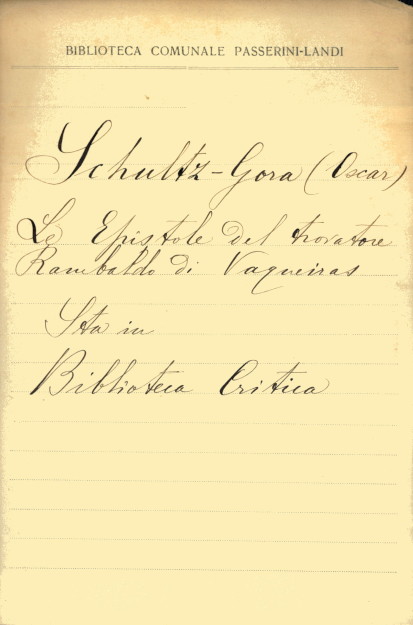 BIBLIOTECA COMUNALE PASSERINI-LANDI
Schultz-Gora (Oscar)
Le Epistole del trovatore
Rambaldo di Vaqueiras
Sta in
Biblioteca Critica